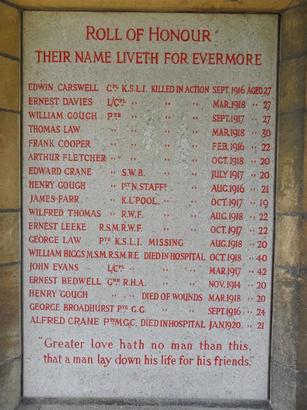 ROLL OF HONOUR
THEIR NAME LIVETH FOR EVERMORE
EDWIN CARSWELL CPL K.S.L.I. KILLED IN ACTION SEPT. 1916 AGED 27
ERNEST DAVIES L/CPL " " " MAR. 1918 " 27
WILLIAM GOUGH PTE " " " SEPT. 1917 " 27
THOMAS LAW " " " " MAR. 1918 " 30
FRANK COOPER " " " " FEB. 1916 " 22
ARTHUR FLETCHER " " " " OCT. 1918 " 20
EDWARD CRANE " S.W.B. " " JULY 1917 " 20
HENRY GOUGH " 1ST N. STAFFS " " AUG. 1916 " 21
JAMES FARR " K.L'POOL. " " OCT. 1917 " 19
WILFRED THOMAS " R.W.F. " " AUG. 1918 " 22
ERNEST LEEKE R.S.M. R.W.F. " " OCT. 1917 " 22
GEORGE LAW PTE K.S.L.I. MISSING AUG. 1918 " 20
WILLIAM BIGGS M.S.M. R.S.M. R.E. DIED IN HOSPITAL OCT. 1918 " 40
JOHN EVANS L/CPL " " " MAR. 1917 " 42
ERNEST BEDWELL GNR R.H.A. " " NOV. 1914 " 20
HENRY GOUGH " " DIED OF WOUNDS MAR. 1918 " 20
GEORGE BROADHURST PTE G.G. " " SEPT. 1916 " 24
ALFRED CRANE PTE M.G.C. DIED IN HOSPITAL JAN. 1920. " 21
"Greater love hath no man than this,
that a man lay down his life for his friends."